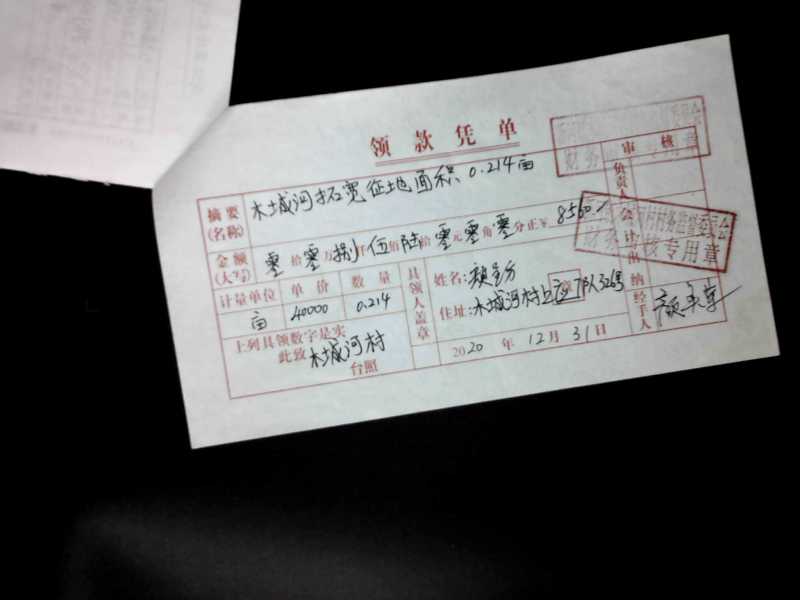 领款凭单
摘要(名称) 木城河拓宽征地面积0.214亩
审核
负责人
金额(大写) 零拾零万捌仟伍佰陆拾零元零角零分正¥8560.-
会计
计量单位 单价 数量
亩 40000 0.214
具领人盖章
姓名:
住址:木城河村上 326号
出纳
经手人
上列具领数字是实
此致 木城河村
台照
2020年12月31日
村财务监督委员会
财务审核专用章